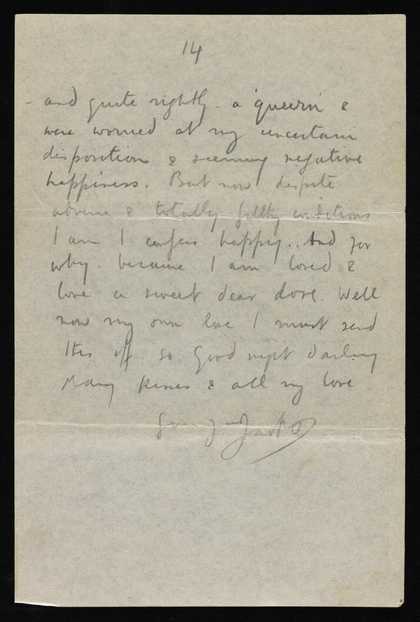 14
- and quite rightly - a 'queerin' &
were worried at my uncertain
disposition & seeming negative
happiness. But now despite
adverse & totally filthy conditions
I am I confess happy.. And for
why. because I am loved &
love a sweet dear dove. Well
now my own love I must send
this off so. Good night Darling
Many kisses & all my love